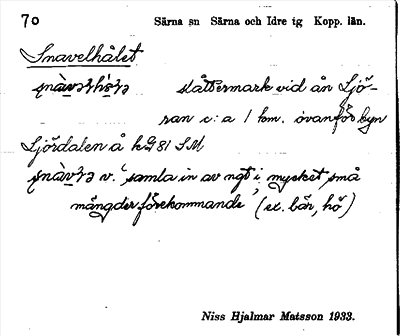 70 Särna sn Särna och Idre tg Kopp. län.
Snavelhålet
slåttermark vid ån Ljö-
ran c:a 1 km. ovanför byn
Ljördalen å
v. samla in av ngt i mycket små
mängder förekommande (ex. bär, hö)
Niss Hjalmar Matsson 1933.